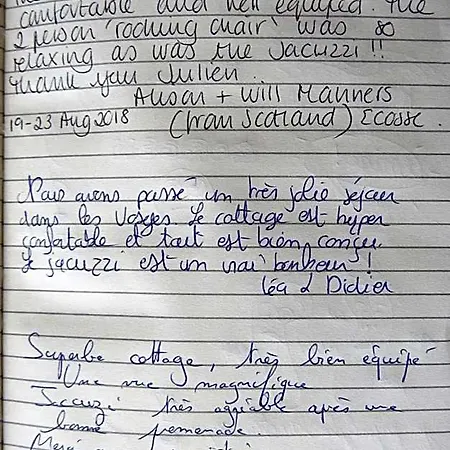 comfortable and well equiped. The
2 person 'rocking chair' was so
relaxing as was the Jacuzzi !!
Thank you Julien..
Alison + Will Manners
19-23 Aug 2018 (from Scotland) Ecosse.
Nous avons passé un très joli séjour
dans les Vosges. Le cottage est hyper
confortable et tout est bien conçu.
Le jacuzzi est un vrai bonheur !
Léa & Didier
Superbe cottage, très bien équipé
Une vue magnifique
Jaccuzi très agréable après une
bonne promenade.